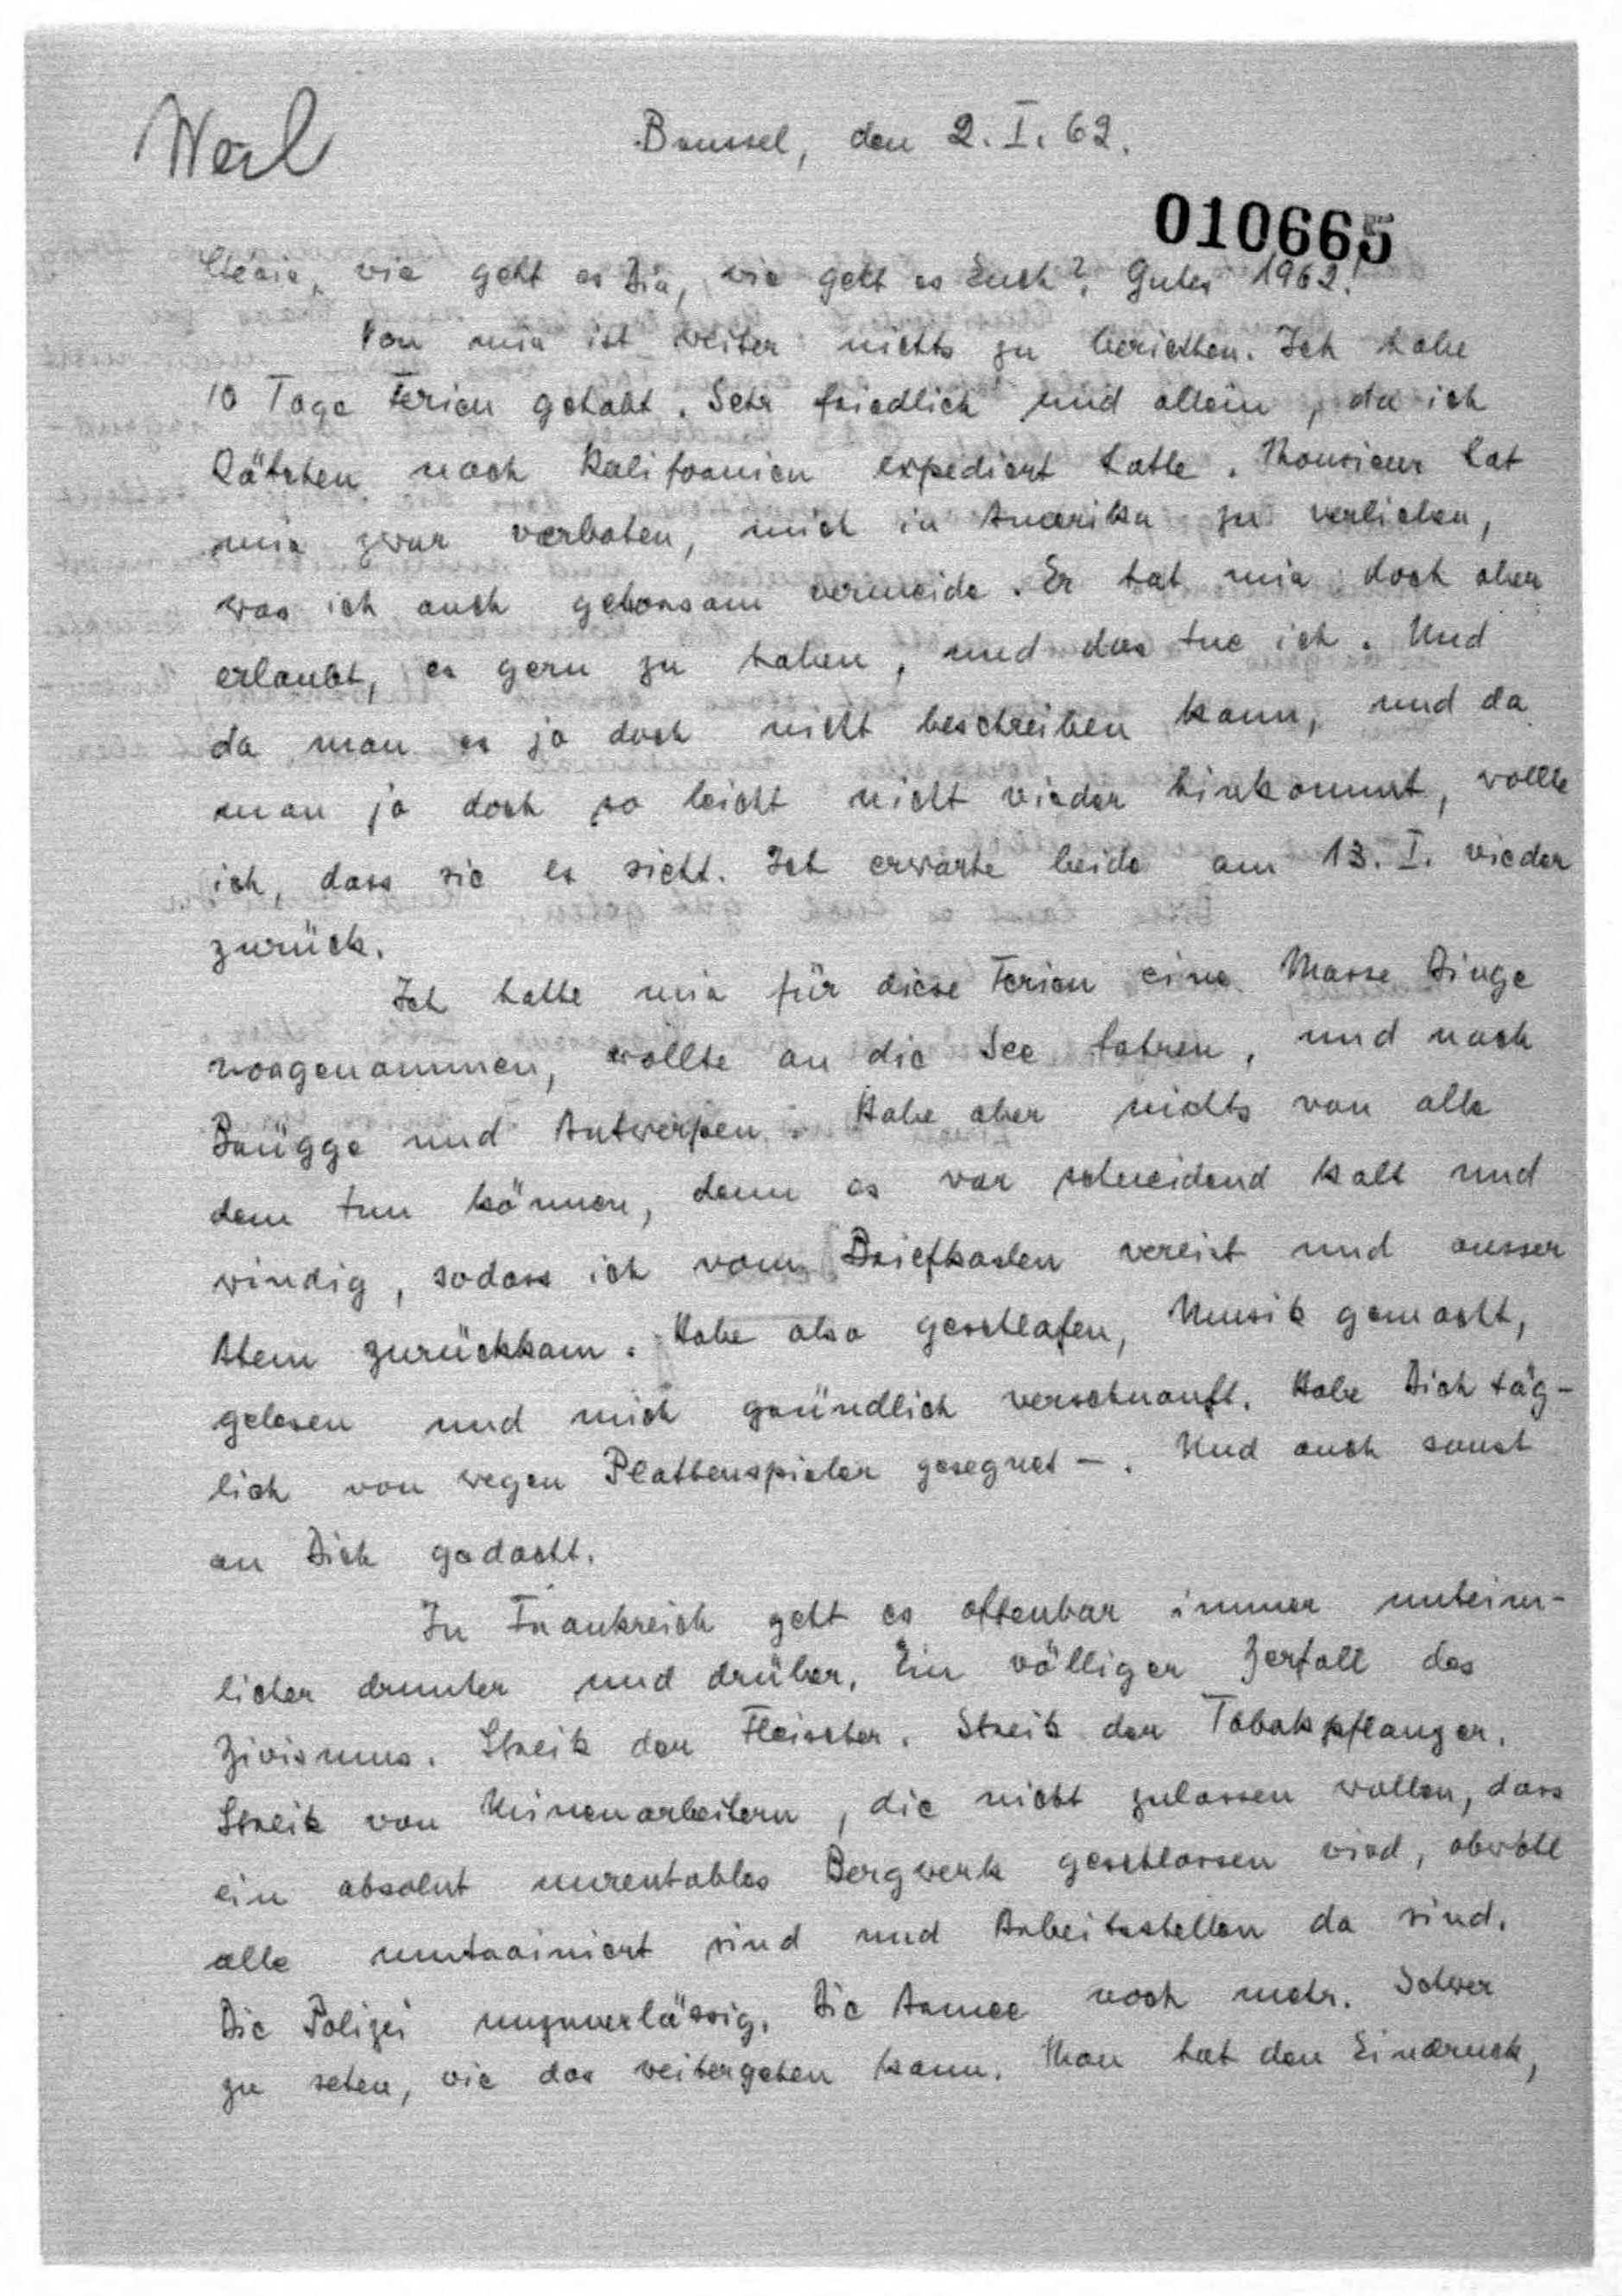 Weil
Brussel, den 2. I. 62.
010665
Chérie, wie geht es Dir, wie geht es Euch? Gutes 1962!
Von mir ist weiter nichts zu berichten. Ich habe
10 Tage Ferien gehabt. Sehr friedlich und allein, da ich
Kätchen nach Kalifornien expediert hatte. Monsieur hat
mir zwar verboten, mich in Amerika zu verlieben,
was ich auch gehorsam vermeide. Er hat mir doch aber
erlaubt, es gern zu haben, und das tue ich. Und
da man es ja doch nicht beschreiben kann, und da
man ja doch so leicht nicht wieder hinkommt, wollte
ich, dass sie es sieht. Ich erwarte beide am 13. I. wieder
zurück.
Ich hatte mir für diese Ferien eine Masse Dinge
vorgenommen, wollte an die See fahren, und nach
Brügge und Antwerpen. Habe aber nichts von alle
dem tun können, denn es war schneidend kalt und
windig, sodass ich vom Briefkasten vereist und ausser
Atem zurückkam. Habe also geschlafen, Musik gemacht,
gelesen und mich gründlich verschnauft. Habe Dich täg-
lich von wegen Plattenspieler gesegnet –. Und auch sonst
an Dich gedacht.
In Frankreich geht es offenbar immer unheim-
licher drunter und drüber. Ein völliger Zerfall des
Zivismus. Streik der Fleischer. Streik der Tabakpflanzer.
Streik von Minenarbeitern, die nicht zulassen wollen, dass
ein absolut unrentables Bergwerk geschlossen wird, obwohl
alle umtrainiert sind und Arbeitsstellen da sind.
Die Polizei unzuverlässig. Die Armee noch mehr. Schwer
zu sehen, wie das weitergehen kann. Man hat den Eindruck,